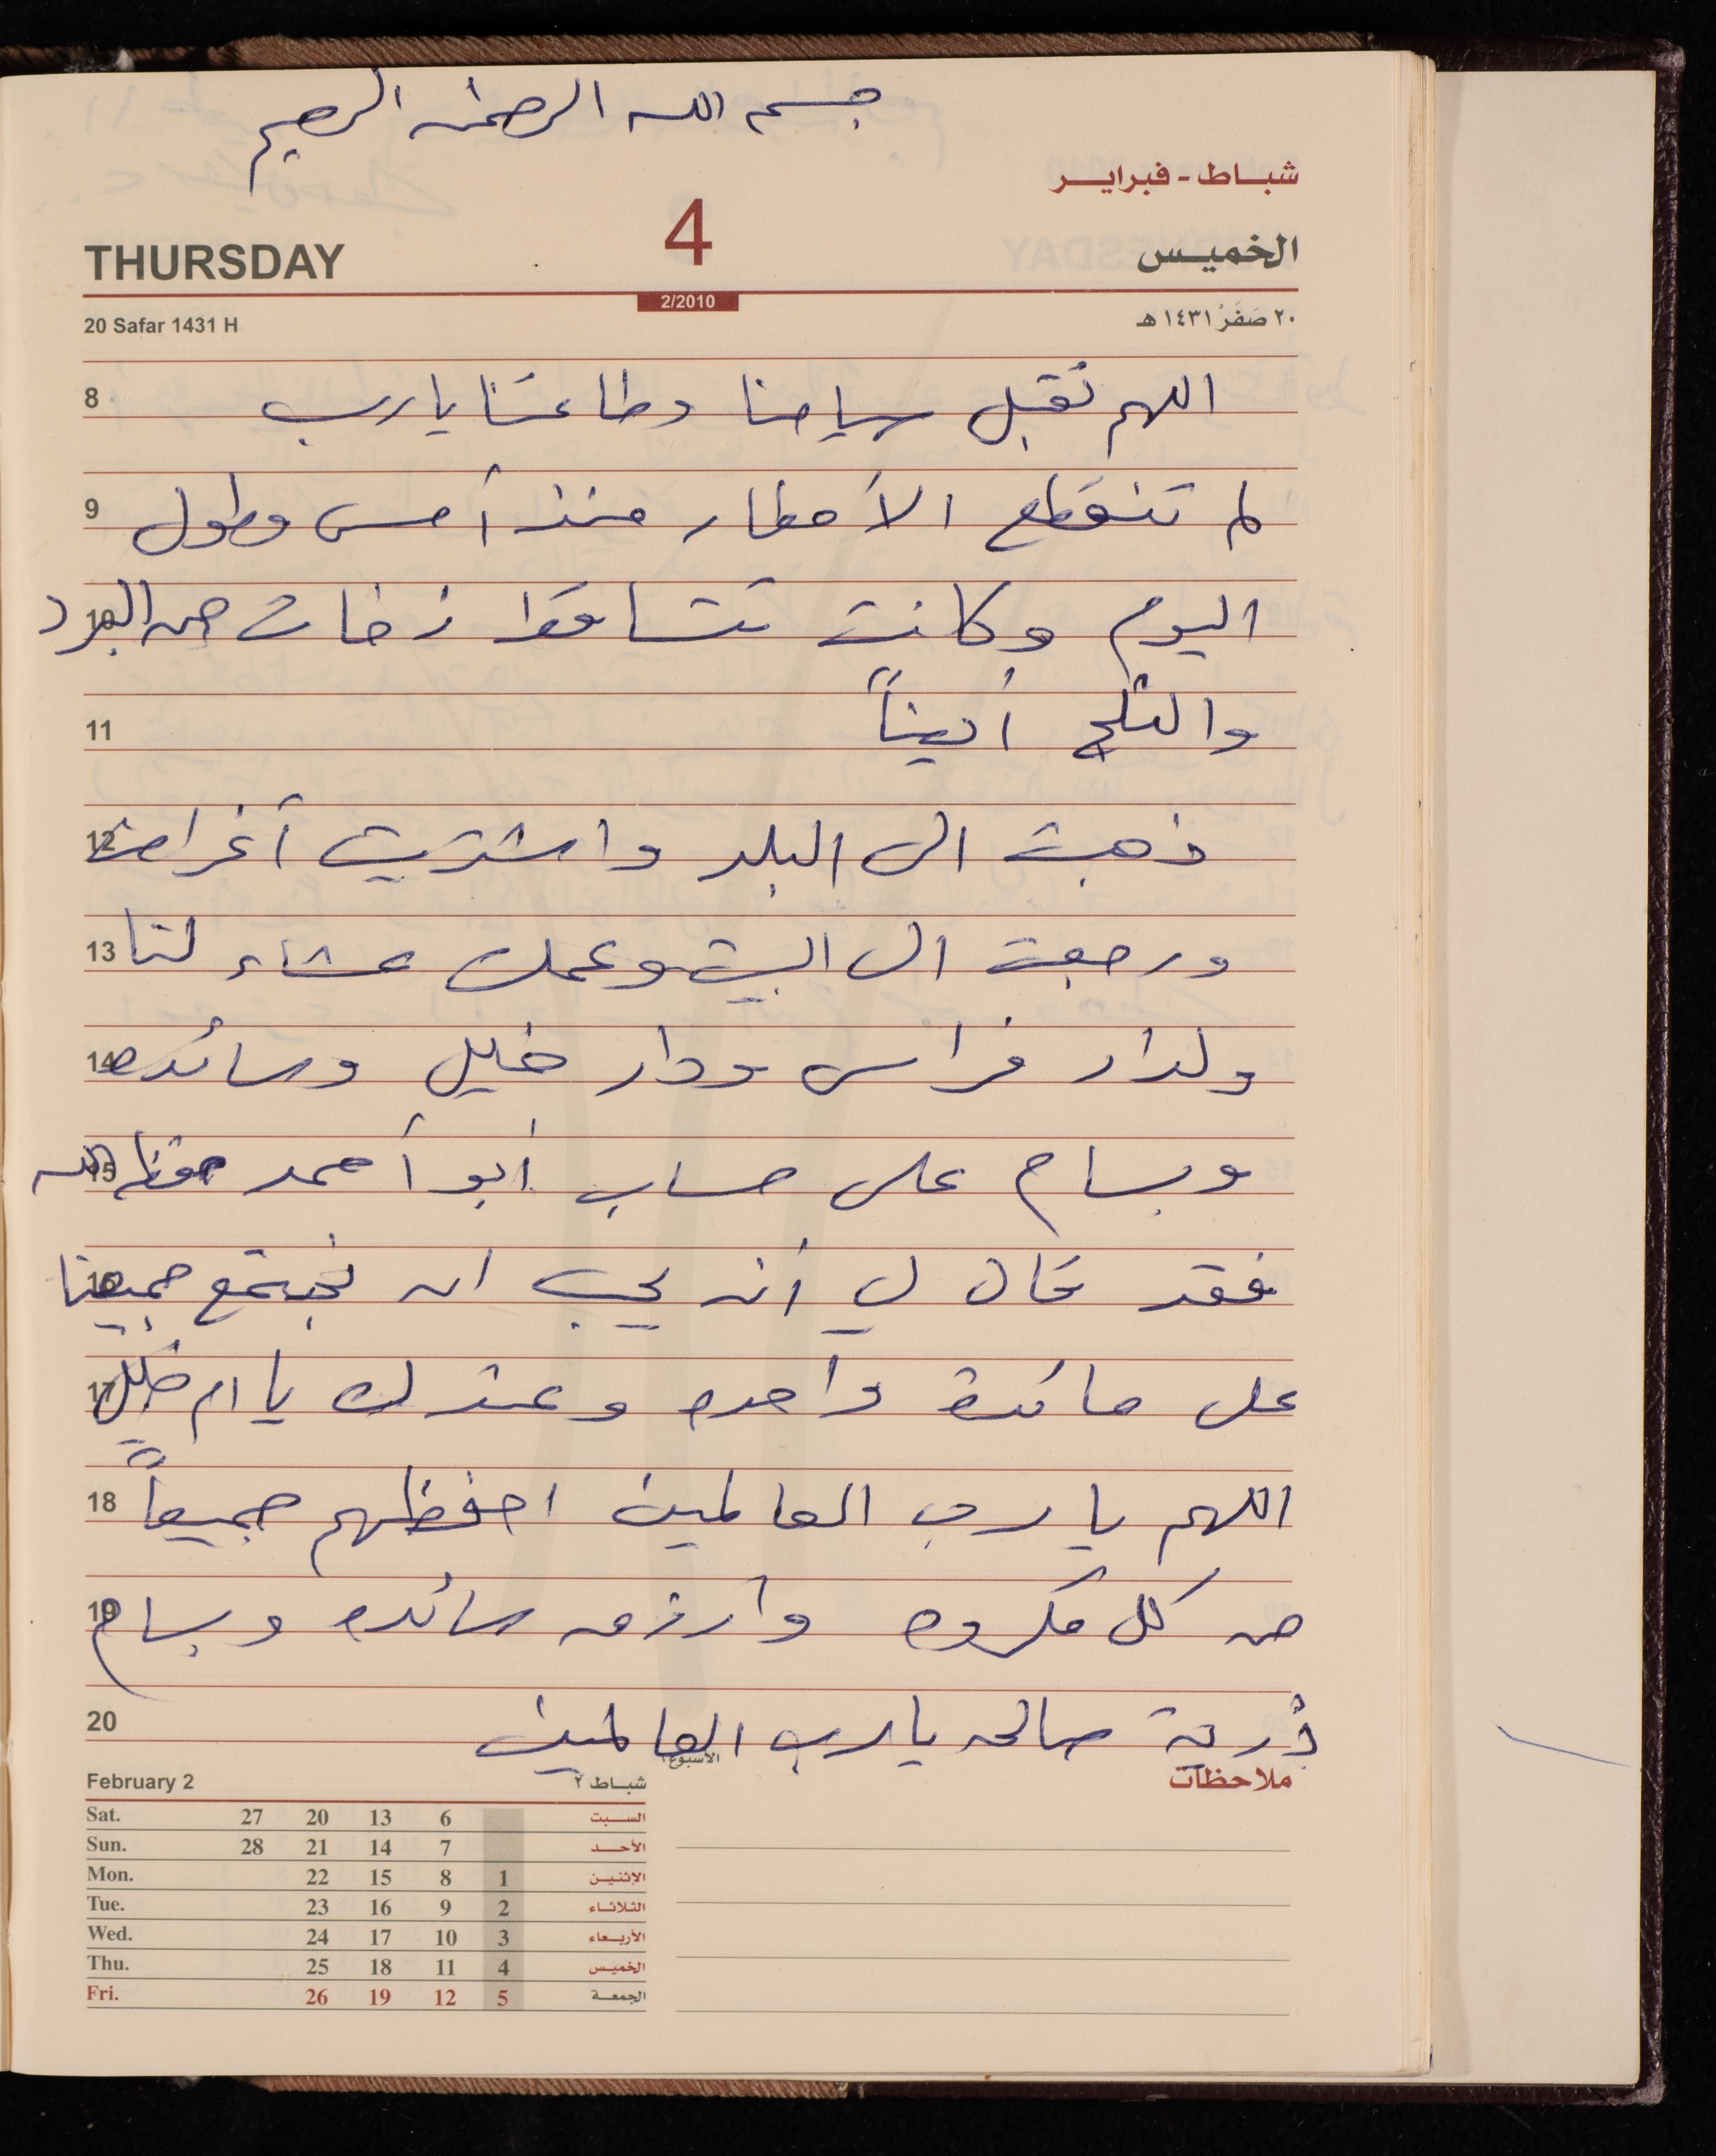 بسم الله الرحمن الرحيم
شباط - فبراير
THURSDAY 4 الخميس
2/2010
20 Safar 1431 H ٢٠ صَفَرْ ١٤٣١ هـ
8 اللهم تقبل صيامنا وطاعتنا يارب
9 لم تنقطع الأمطار منذ أمس وطول
10 اليوم وكانت تتساقط زخات من البرد
11 والثلج أحيناً
12 ذهبت الى البلد واشتريت أغراض
13 ورجعت الى البيت وعملت عشاء لنا
14 ولدار فراس ودار خليل وسائده
15 وبسام على حساب أبو أحمد حفظه الله
16 فقد قال لي أنه يحب ان نجتمع جميعنا
17 على مائدة واحده وعندك يا ام خليل
18 اللهم يا رب العالمين احفظهم جميعاً
19 من كل مكروه وأرزق سائده وبسام
20 ذُرية صالحه يارب العالمين
ملاحظات
February 2 شباط ٢ الأسبوع
Sat. 27 20 13 6 السبت
Sun. 28 21 14 7 الأحد
Mon. 22 15 8 1 الإثنين
Tue. 23 16 9 2 الثلاثاء
Wed. 24 17 10 3 الأربعاء
Thu. 25 18 11 4 الخميس
Fri. 26 19 12 5 الجمعة